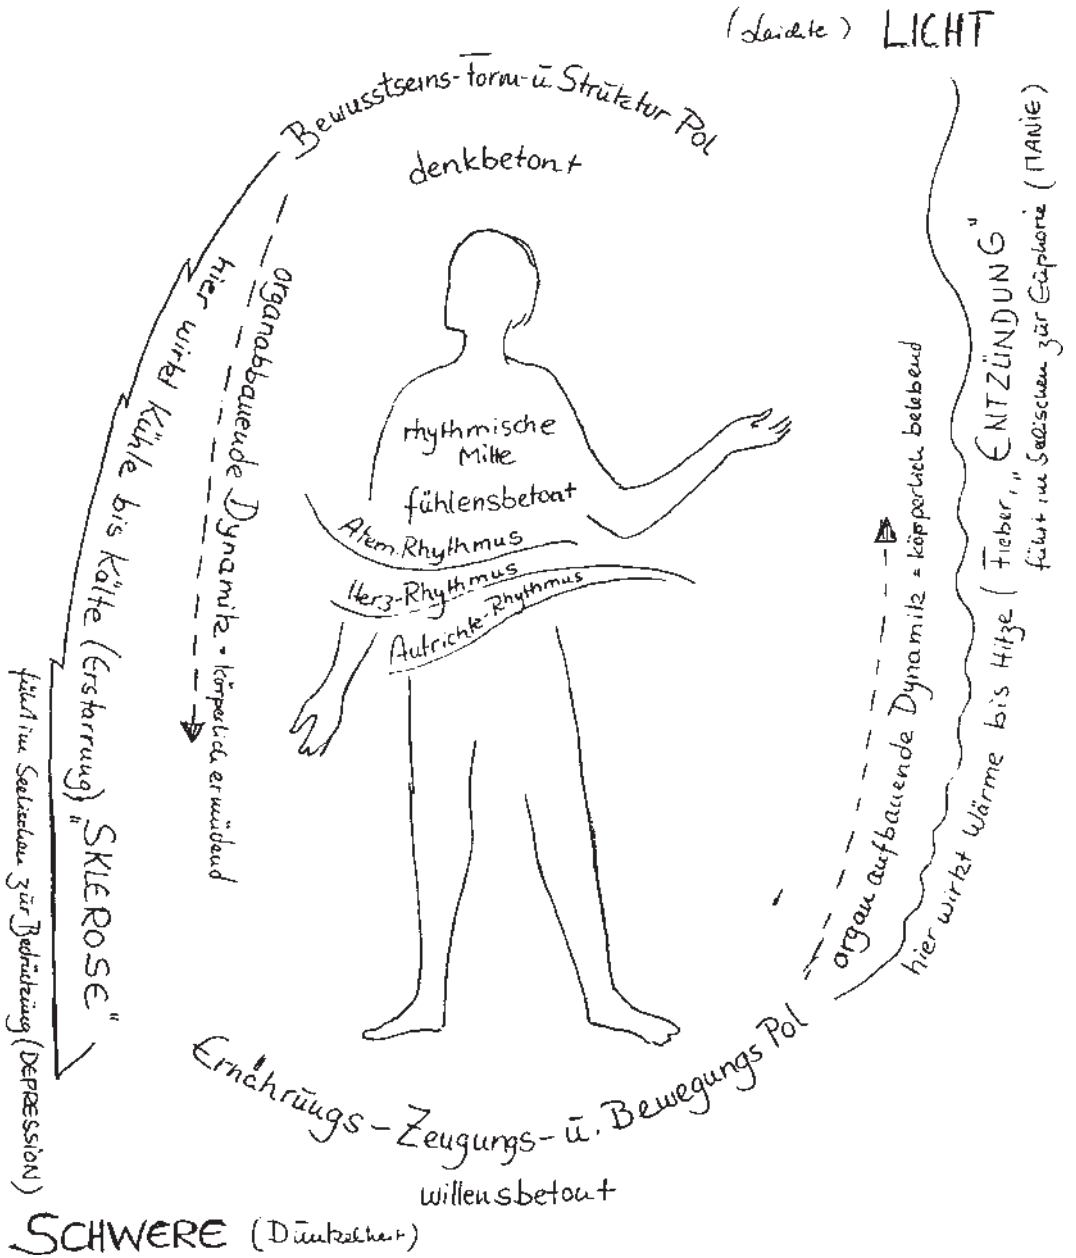 (Leichte) LICHT
Bewusstseins-Form-ū Strūktur Pol
denkbetont
hier wirkt Kühle bis Kälte (Erstarrung) "SKLEROSE"
führt im Seelischen zūr Bedrückūng (DEPRESSION)
organabbauende Dynamik = körperlich ermüdend
rhythmische
Mitte
fühlensbetont
Atem-Rhythmus
Herz-Rhythmus
Aufrichte-Rhythmus
organ aufbauende Dynamik = körperlich belebend
hier wirkt Wärme bis Hitze (Fieber, „ENTZÜNDUNG"
führt im Seelischen zūr Eūphorie (MANIE)
Ernährūngs-Zeugungs-ū. Bewegungs Pol
willensbetont
SCHWERE (Dūnkelheit)